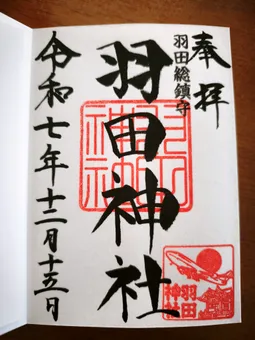 奉拝
羽田総鎮守
羽田神社
令和七年十二月十五日
羽田
神社
羽田
神社